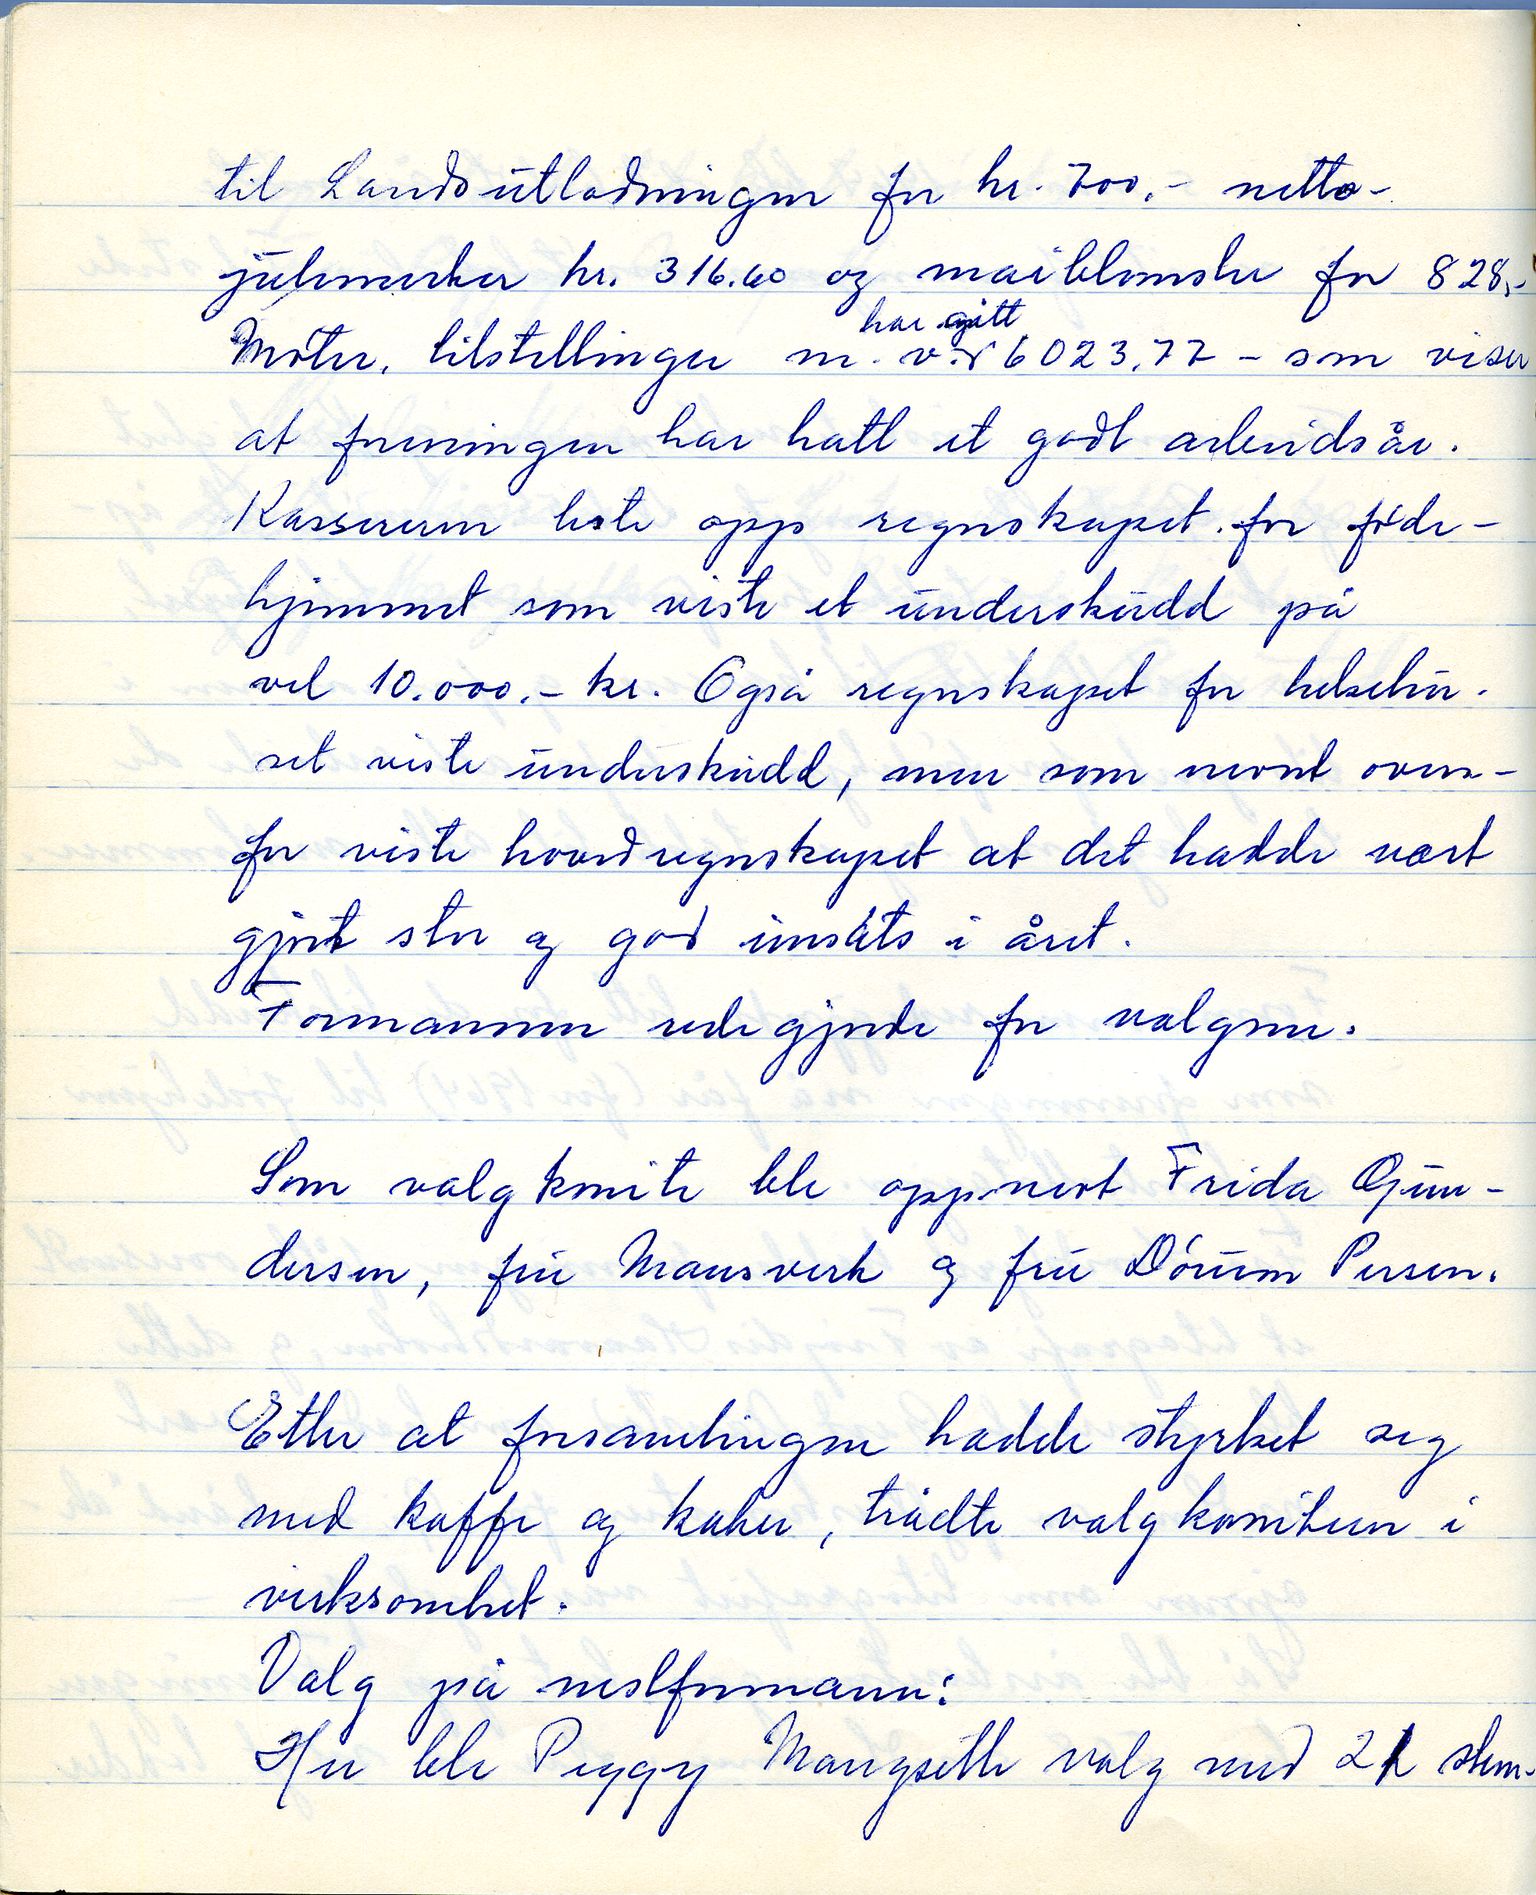 til Landsutlodningen for kr. 700,- netto -
julemerker kr. 316.60 og maiblomster for 828,-
har gitt
Møter, tilstellinger m. v. 6023,77 - som viser
at foreningen har hatt et godt arbeidsår.
Kassereren leste opp regnskapet for føde-
hjemmet som viste et underskudd på
vel 10.000,- kr. Også regnskapet for helsehu-
set viste underskudd, men som nevnt oven-
for viste hovedregnskapet at det hadde vært
gjort stor og god innsats i året.
Formannen redegjorde for valgene.
Som valgkomite ble oppnevnt Frida Gun-
dersen, fru Mansverk og fru Dórum Persen.
Etter at forsamlingen hadde styrket seg
med kaffe og kaker, trådte valgkomiteen i
virksomhet.
Valg på nestformann:
Her ble Peggy Mangseth valg med 21 stem-